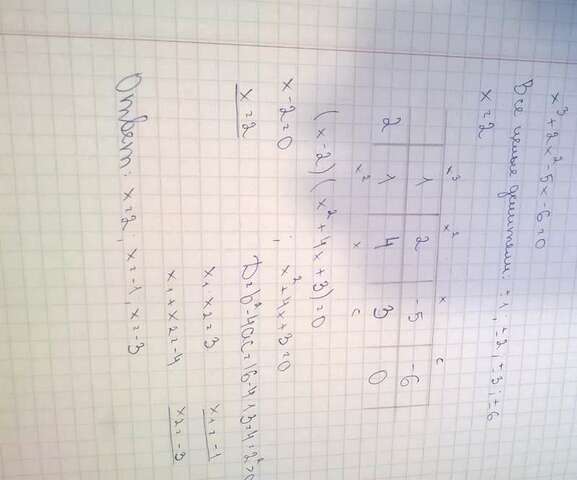 x³+2x²-5x-6=0
Все целые делители: ±1; ±2; ±3; ±6
x=2
x³ x² x c
1 2 -5 -6
2 1 4 3 0
x² x c
(x-2)(x²+4x+3)=0
x-2=0 ; x²+4x+3=0
x=2 D=b²-4ac=16-4·1·3=4=2²>0
x₁ x₂=3 x₁=-1
x₁+x₂=-4 x₂=-3
Ответ: x=2; x=-1, x=-3